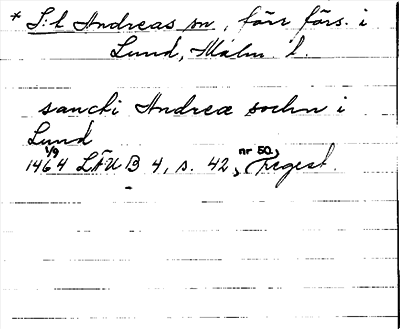 * S:t Andreas sn, förr förs. i
Lund, Malm. l.
sancti Andreæ sochn i
Lund
1/9
1464 LÄU B 4, s. 42, nr 50, Regest.